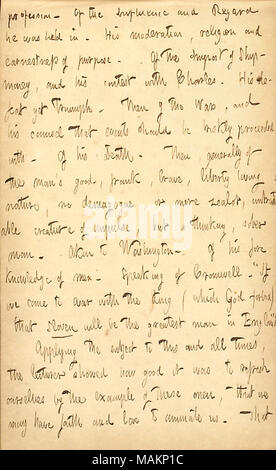 profession - Of the influence and Regard
he was held in. His moderation, religion and
earnestness of purpose. Of the import of Ship-
money, and his contest with Charles. His De-
feat yet Triumph. Then of the War, and
his counsel that events should be briskly proceeded
with - Of his Death. Then, generally of
the man's good, frank, brave, liberty loving
nature, no demagogue or mere zealot,
able creature of impulse, but thinking, sober
man. Akin to Washington. Of his fore
knowledge of men. Speaking of Cromwell - "If
we come to war with the King (which God forbid)
that sloven will be the greatest man in England
Applying the subject to this and all times
the lecturer showed how good it was to refresh
ourselves by the example of these ones, that we
may have faith and love to animate us. That
alamy
alamy
Image ID: MAKP1C
www.alamy.com